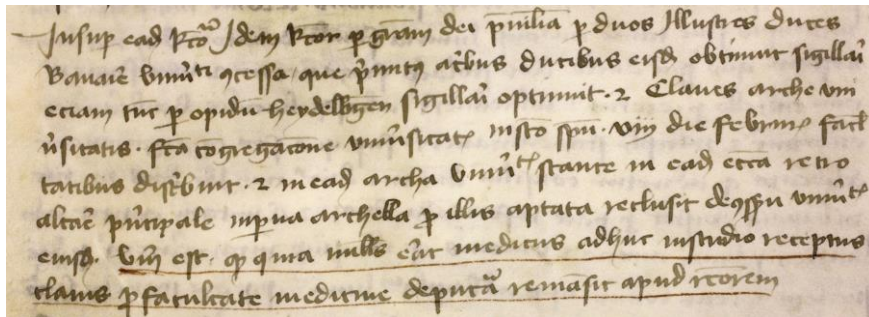 Insup ead Rcoͣ Idem Rcor p gram dei pnilia p duos Illustres duces
Bauarie vniuͥti ꝯcessa, que prius a duobus ducibus eisd obtinuit sigillari
eciam tuc p opidu heydelbgen sigillari optinuit · ⁊ Claues arche vni
uͥsitatis · fca cogregacone vniuͥsitatꝭ in sto spu · viij die februarꝭ facl
tatibus distͥbuit · ⁊ in ead archa vniuͥtꝭ stante in ead ecca retro
altare pͥncipale in pua archella p illis aptata reclusit de ꝯssu vniuͥtꝭ
eiusd. Vm est · ꝙ quia nulls erat medicus adhuc in studio receptus
clauis p facultate medicine deputata remasit apud rcorem